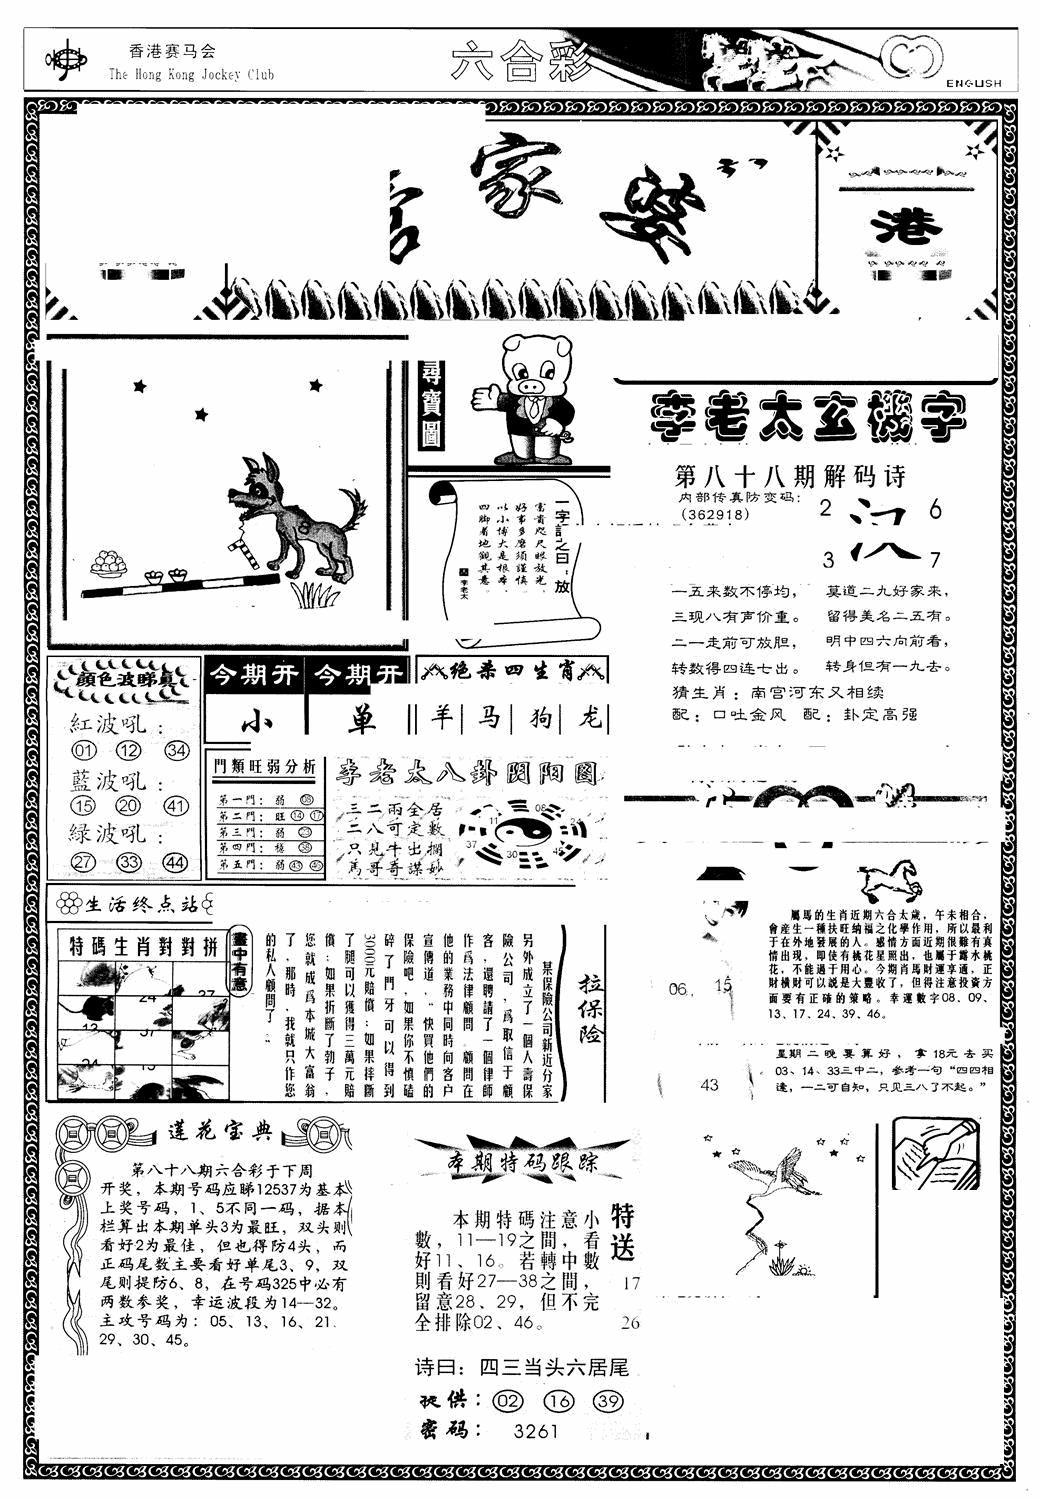 香港赛马会
The Hong Kong Jockey Club
六合彩
ENGLISH
家
婆
港
尋寶圖
一字記之曰：放
富貴咫尺眼放光
好事多磨須謹慎
以小博大是根本
四脚着地觀其意
李老太
李老太玄機字
第八十八期解码诗
内部传真防变码：
(362918)
2 6
3 7
一五来数不停均， 莫道二九好家来，
三现八有声价重。 留得美名二五有。
二一走前可放胆， 明中四六向前看，
转数得四连七出。 转身但有一九去。
猜生肖：南宫河东又相续
配：口吐金风 配：卦定高强
顏色波睇真
紅波吼：
01 12 34
藍波吼：
15 20 41
绿波吼：
27 33 44
今期开 今期开
小 单
绝杀四生肖
羊 马 狗 龙
門類旺弱分析
第一門：弱 08
第二門：旺 14 17
第三門：弱 23
第四門：穩 38
第五門：弱 43 46
李老太八卦阴阳图
三二兩全居
二八可定數
只見牛出欄
馬哥奇謀妙
08
11 24
37
30 45
生活终点站
特碼生肖對對拼
畫中有意
24 27
13 37
24
拉保險
某保險公司新近分家
另外成立了一個人壽保
險公司，爲取信于顧
客，還聘請了一個律師
作爲法律顧問。顧問在
他的業務中同時向客户
宣傳道，“快買他們的
保險吧，如果你不慎磕
碎了門牙可以得到
3000元賠償；如果摔斷
了腿可以獲得三萬元賠
償；如果折斷了勃子，
您就成爲本城大富翁
了，那時，我就只作您
的私人顧問了。
06、 15
43
屬馬的生肖近期六合太歲，午未相合，
會産生一種扶旺纳福之化學作用，所以最利
于在外地發展的人。感情方面近期很難有真
情出現，即使有桃花星照出，也屬于露水桃
花，不能過于用心。今期肖馬財運享通，正
財橫財可以説是大豐收了，但得注意投資方
面要有正確的策略。幸運數字08、09、
13、17、24、39、46。
星期二晚要算好，拿18元去买
03、14、33三中二，参考一句“四四相
逢，一二可自知，只见三八了不起。”
莲花宝典
第八十八期六合彩于下周
开奖，本期号码应睇12537为基本
上奖号码，1、5不同一码，据本
栏算出本期单头3为最旺，双头则
看好2为最佳，但也得防4头，而
正码尾数主要看好单尾3、9，双
尾则提防6、8，在号码325中必有
两数参奖，幸运波段为14—32。
主攻号码为：05、13、16、21、
29、30、45。
本期特码跟踪
本期特碼注意小
數，11—19之間，看
好11、16。若轉中數
則看好27—38之間，
留意28、29，但不完
全排除02、46。
特送
17
26
诗曰：四三当头六居尾
提供：02 16 39
密码：3261